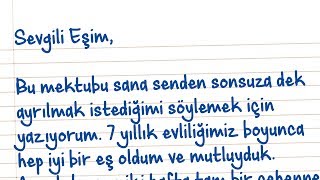 Sevgili Eşim,
Bu mektubu sana senden sonsuza dek
ayrılmak istediğimi söylemek için
yazıyorum. 7 yıllık evliliğimiz boyunca
hep iyi bir eş oldum ve mutluyduk.